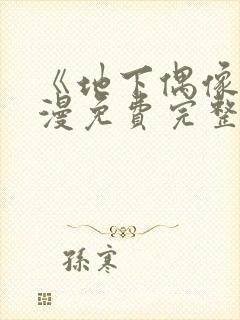 《地下偶像
漫免費完整
孫寒